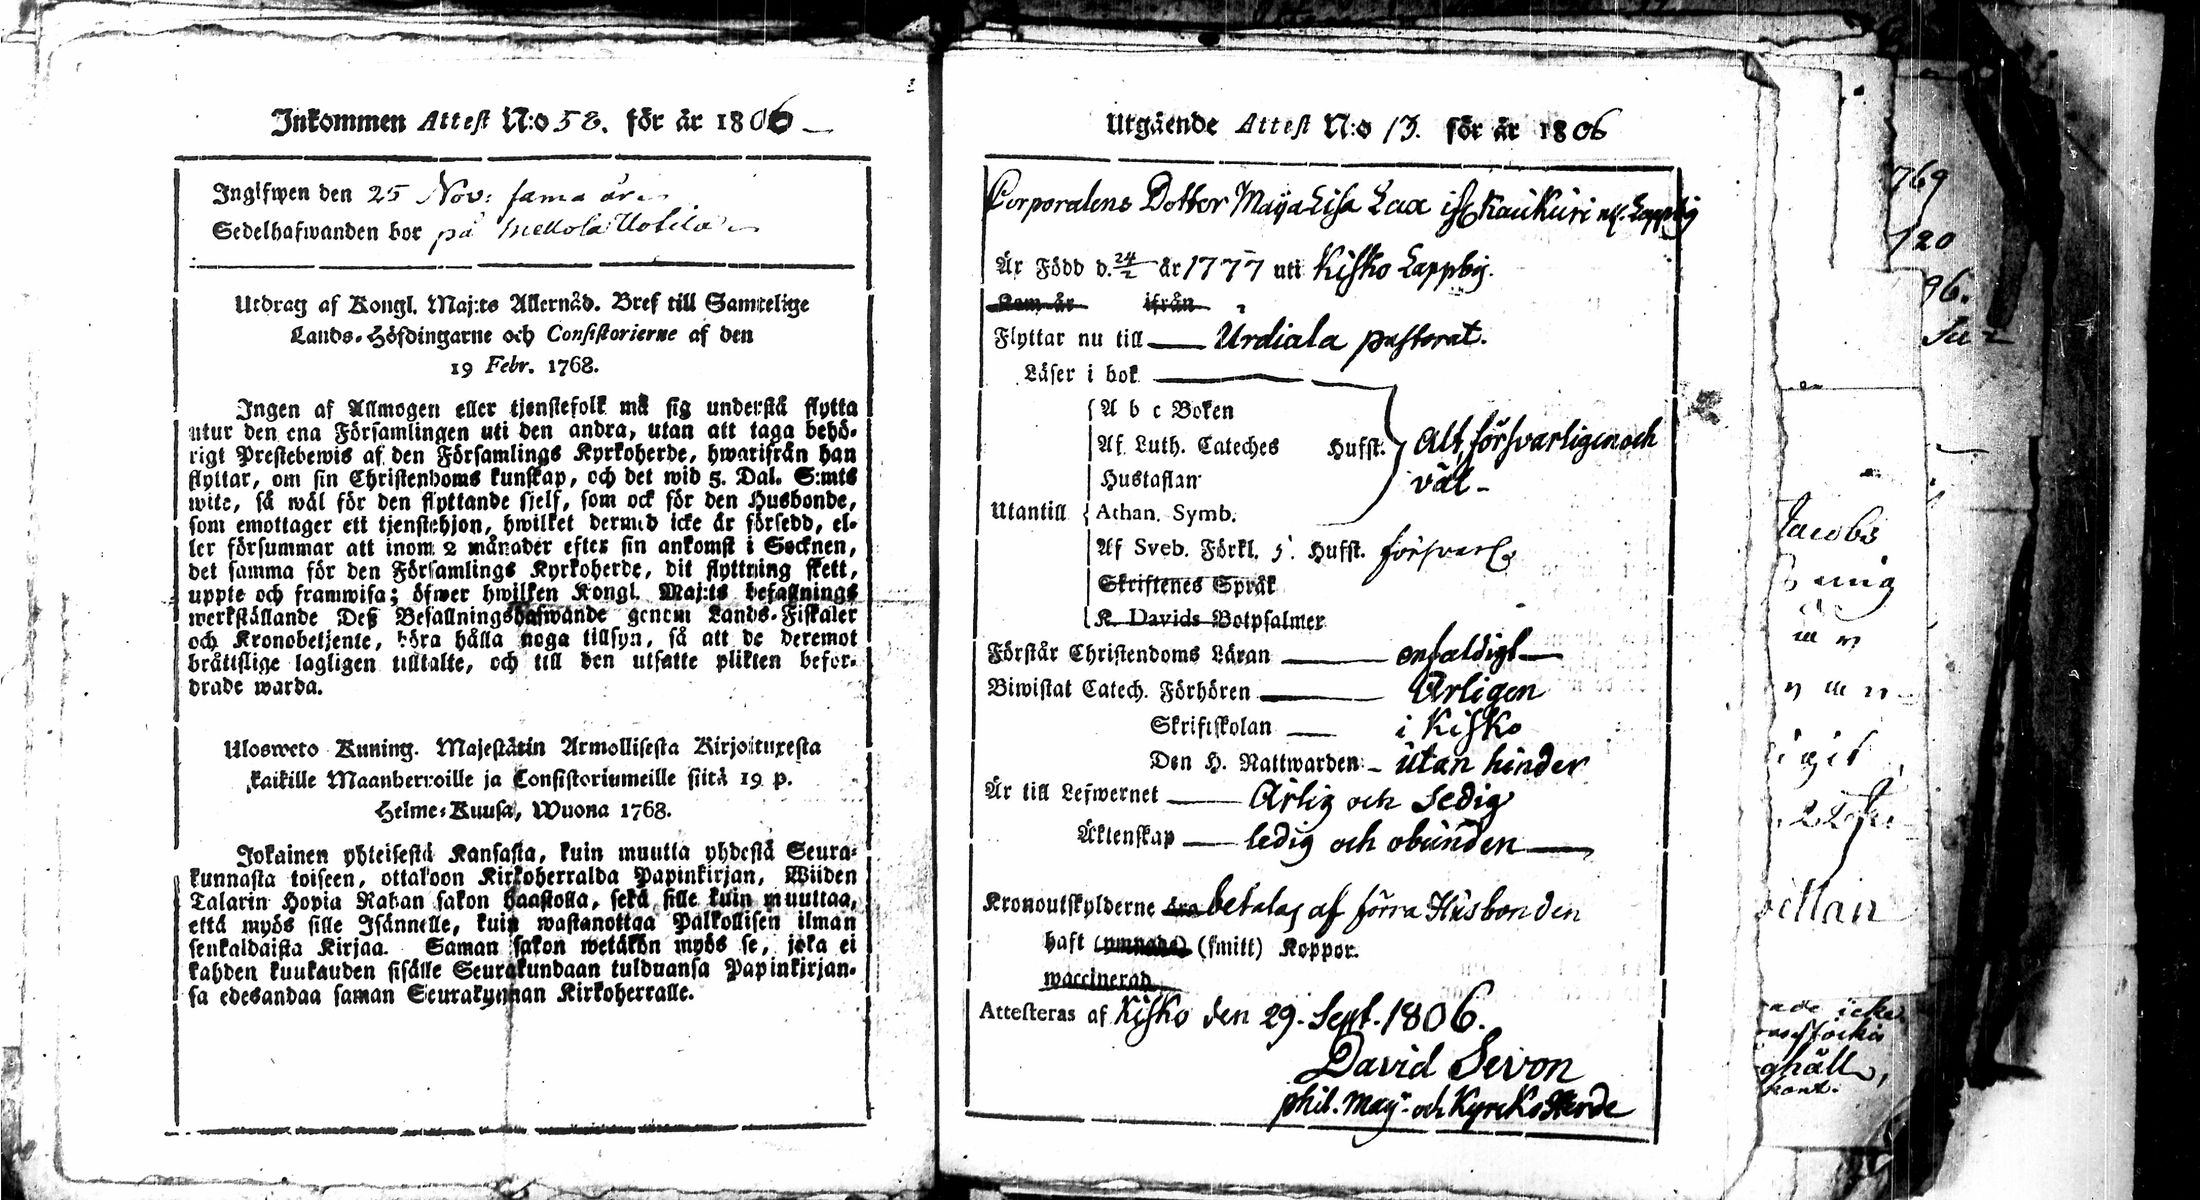 Inkommen Attest N:o 58. för år 1806
Ingifwen den 25 Nov: sama år
Sedelhafwanden bor på Mellola Uotila
Utdrag af Kongl. Maj:ts Allernåd. Bref till Samtelige
Lands-Höfdingarne och Consistorierne af den
19 Febr. 1768.
Ingen af Allmogen eller tjenstefolk må sig understå flytta
utur den ena Församlingen uti den andra, utan att taga behö-
rigt Prestebewis af den Församlings Kyrkoherde, hwarifrån han
flyttar, om sin Christendoms kunskap, och det wid 5. Dal. S:mts
wite, så wäl för den flyttande sjelf, som ock för den Husbonde,
som emottager ett tjenstehjon, hwilket dermed icke är försedd, el-
ler försummar att inom 2 månader efter sin ankomst i Socknen,
det samma för den Församlings Kyrkoherde, dit flyttning skett,
uppte och framwisa; öfwer hwilken Kongl. Maj:ts befallnings
werkställande Deß Befallningshafwande genom Lands-Fiskaler
och Kronobetjente, böra hålla noga tillsyn, så att de deremot
bråttslige lagligen tilltalte, och till den utsatte plikten befor-
drade warda.
Ulosweto Kuning. Majestätin Armollisesta Kirjoituxesta
kaikille Maanherroille ja Consistoriumeille siitä 19 p.
Helme-Kuusa, Wuona 1768.
Jokainen yhteisestä Kansasta, kuin muutta yhdestä Seura-
kunnasta toiseen, ottakoon Kirkoherralda Papinkirjan, Wiiden
Talarin Hopia Rahan sakon haastolla, sekä sille kuin muuttaa,
että myös sille Isännelle, kuin wastanottaa Palkollisen ilman
senkaldaista Kirjaa. Saman sakon wetäkön myös se, joka ei
kahden kuukauden sisälle Seurakundaan tulduansa Papinkirjan-
sa edesandaa saman Seurakunnan Kirkoherralle.
Utgående Attest N:o 13. för år 1806
Corporalens Dotter Maja Lisa Lax if: Kaukuri af Lappby
Är Född d. 24/2 år 1777 uti Kisko Lappby.
Kom år ifrån
Flyttar nu till Urdiala pastorat.
Läser i bok
A b c Boken
Af Luth. Cateches Hufst. Alt, försvarligen och
Hustaflan väl
Utantill Athan. Symb.
Af Sveb. Förkl. 5. Hufst. försvarl:
Skriftenes Språk
K. Davids Botpsalmer
Förstår Christendoms Läran enfaldigt
Biwistat Catech. Förhören Årligen
Skriftskolan i Kisko
Den H. Nattwarden utan hinder
Är till Lefwernet Ärlig och sedig
Äktenskap ledig och obunden
Kronoutskylderne äro betalas af förra Husbonden
haft (ympade) (smitt) Koppor.
waccinerad
Attesteras af Kisko den 29. Sept. 1806.
David Sevon
phil. Mag:r och Kyrckoherde
769
120
96.
Jacobs